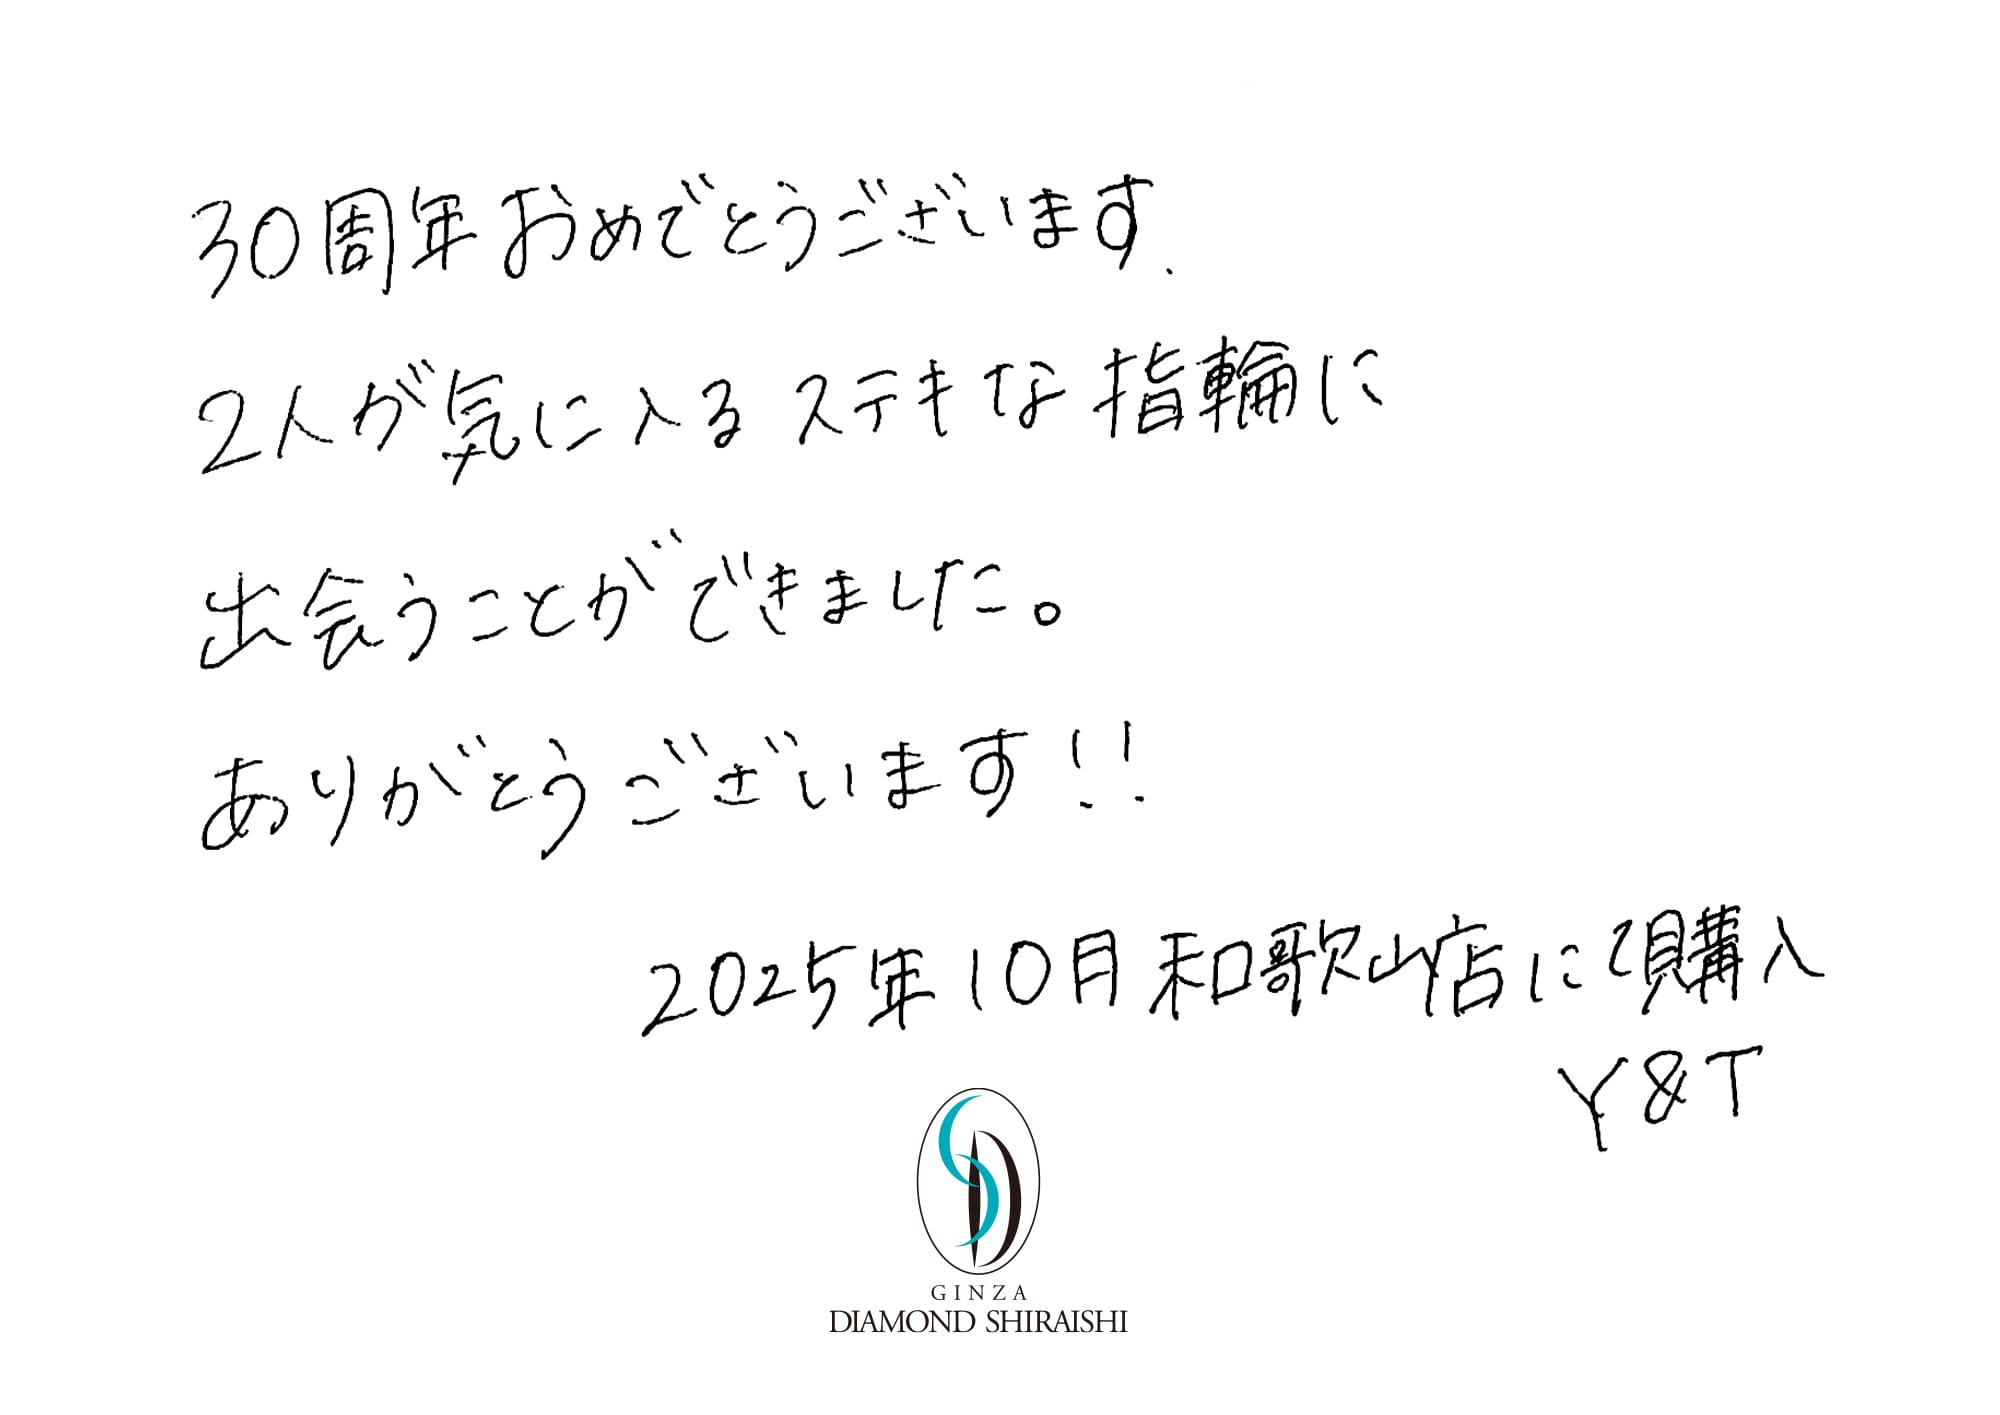 30周年おめでとうございます.
2人が気に入るステキな指輪に
出会うことができました。
ありがとうございます!!
2025年10月和歌山店にて購入
Y&T
GINZA
DIAMOND SHIRAISHI